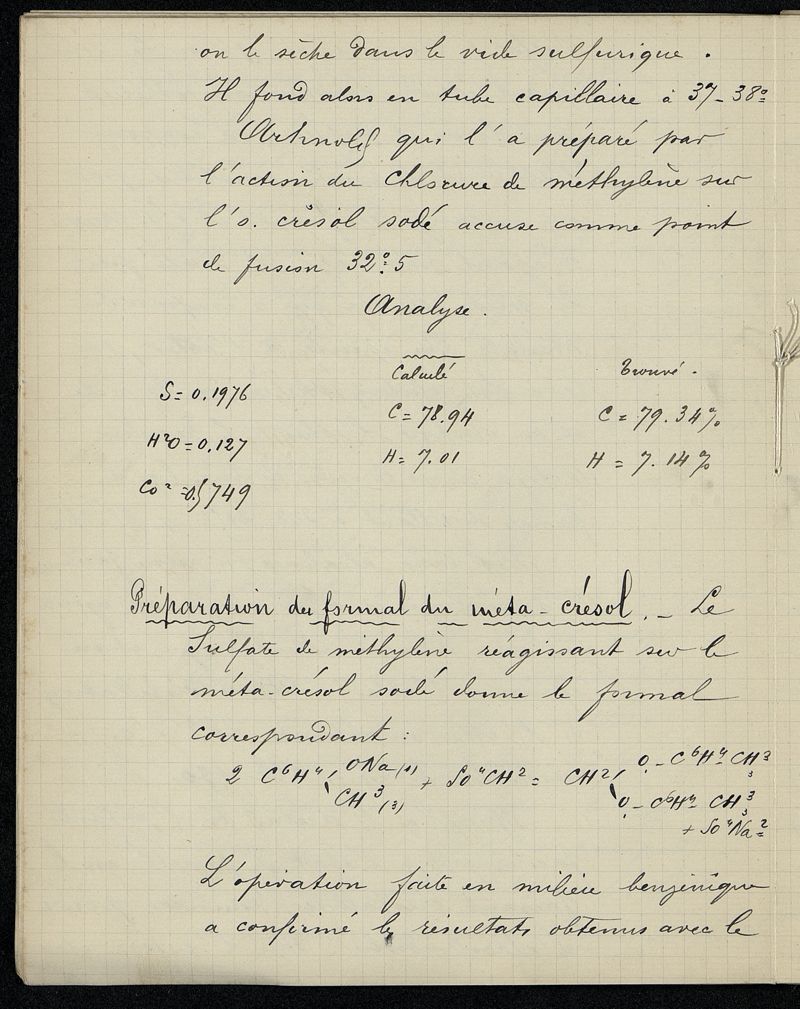 on le sèche dans le vide sulfurique.
Il fond alors en tube capillaire à 37-38°
Arhnold qui l'a préparé par
l'action du Chlorure de méthylène sur
l'o. crésol sodé accuse comme point
de fusion 32°.5
Analyse.
Calculé Trouvé.
S = 0.1976
C = 78.94 C = 79.34%
H²O = 0.127
H = 7.01 H = 7.14%
Co² = 0.5749
Préparation du formal du méta-crésol. - Le
Sulfate de méthylène réagissant sur le
méta-crésol sodé donne le formal
correspondant :
2 C⁶H⁴ ONa (1) + So⁴CH² = CH² O-C⁶H⁴-CH³
CH³ (3) O-C⁶H⁴-CH³
+ So⁴Na²
L'opération faite en milieu benzénique
a confirmé les résultats obtenus avec le